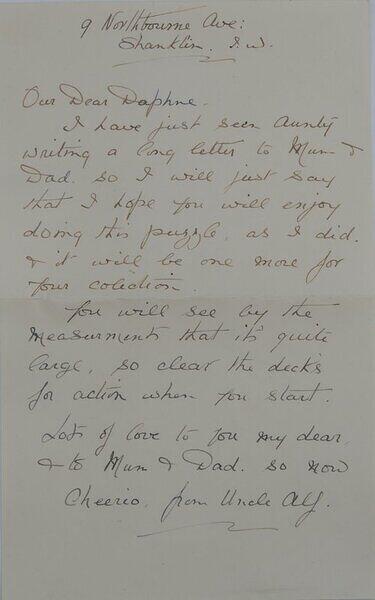 9 Northbourne Ave:
Shanklin. I.W.
Our Dear Daphne.
I have just seen Aunty
writing a long letter to Mum &
Dad. so I will just say
that I hope you will enjoy
doing this puzzle, as I did.
& it will be one more for
your colection.
You will see by the
measurments that it's quite
large, so clear the decks
for action when you start.
Lots of love to you my dear,
& to Mum & Dad. so now
Cheerio, from Uncle Alf.